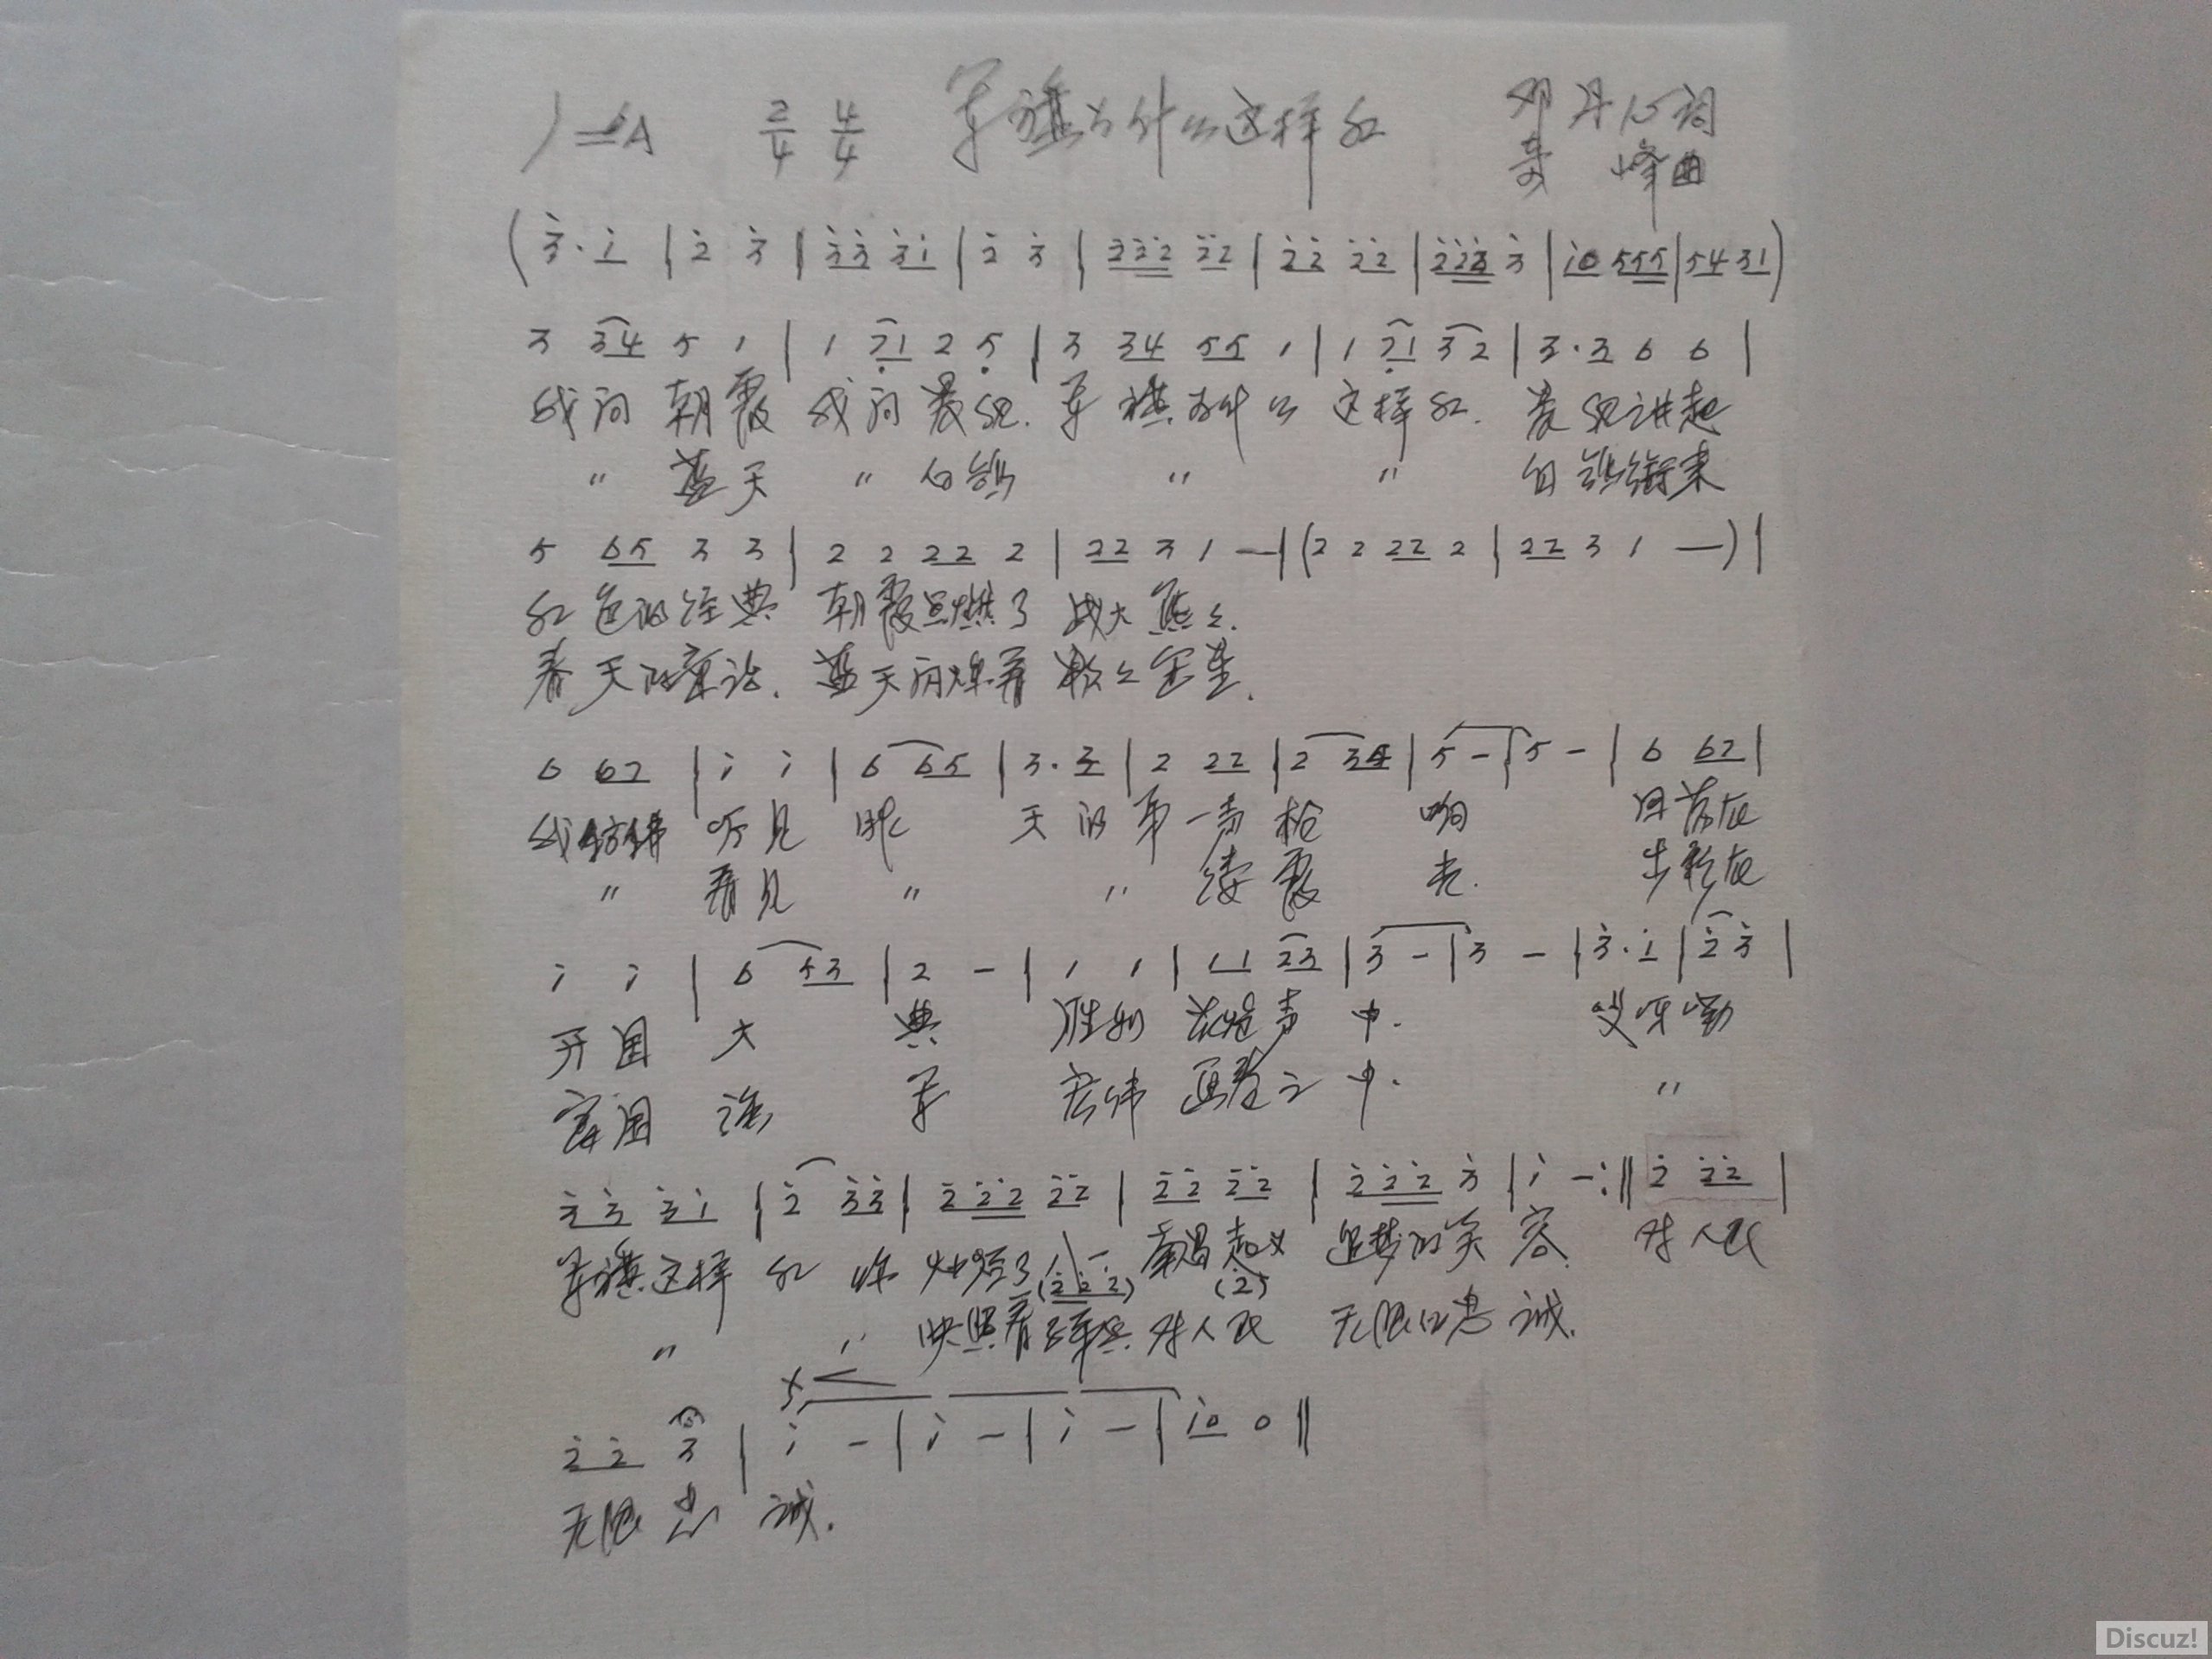 1=♭A 2/4 4/4 军旗为什么这样红 邓丹心词
奇峰曲
(3̇·1̇ | 2̇ 3̇ | 3̇3̇ 3̇1̇ | 2̇ 3̇ | 2̇2̇2̇ 2̇2̇ | 2̇2̇ 2̇2̇ | 2̇2̇2̇ 3̇ | 1̇0 555 | 54 31)
3 34 5 1 | 1 7̣1 2 5̣ | 3 34 55 1 | 1 7̣1 3 2 | 3·3 6 6 |
我问朝霞 我问晨曦. 军旗为什么这样红. 晨曦讲起
〃 蓝天 〃 白鸽 〃 〃 白鸽衔来
5 65 3 3 | 2 2 22 2 | 22 3 1 — | (2 2 22 2 | 22 3 1 —) |
红色的经典 朝霞点燃了 战火熊々.
春天的童话. 蓝天闪烁着 枚々金星.
6 67 | 1̇ 1̇ | 6 65 | 3·3 | 2 22 | 2 34 | 5 - | 5 - | 6 67 |
我仿佛 听见 昨 天的第一声枪 响 回荡在
〃 看见 〃 〃 缕霞 光. 步彩在
1̇ 1̇ | 6 53 | 2 - | 1 1 | 11 23 | 3 - | 3 - | 3̇·1̇ | 2̇ 3̇ |
开国 大 典 胜利 礼炮声 中. 哎呀嘞
富国 强 军 宏伟 画卷之 中. 〃
3̇3̇ 3̇1̇ | 2̇ 3̇3̇ | 2̇2̇2̇ 2̇2̇ | 2̇2̇ 2̇2̇ | 2̇2̇2̇ 3̇ | 1̇ -:‖ 2̇ 2̇2̇ |
军旗这样 红 你 灿烂了八一 南昌起义 追梦的笑 容. 对人民
(2̇2̇2̇) (2̇)
〃 〃 映照着子弟兵 对人民 无限的忠 诚.
2̇2̇ 3̇ | 1̇ - | 1̇ - | 1̇ - | 1̇0 0 ‖
无限 忠 诚.
Discuz!